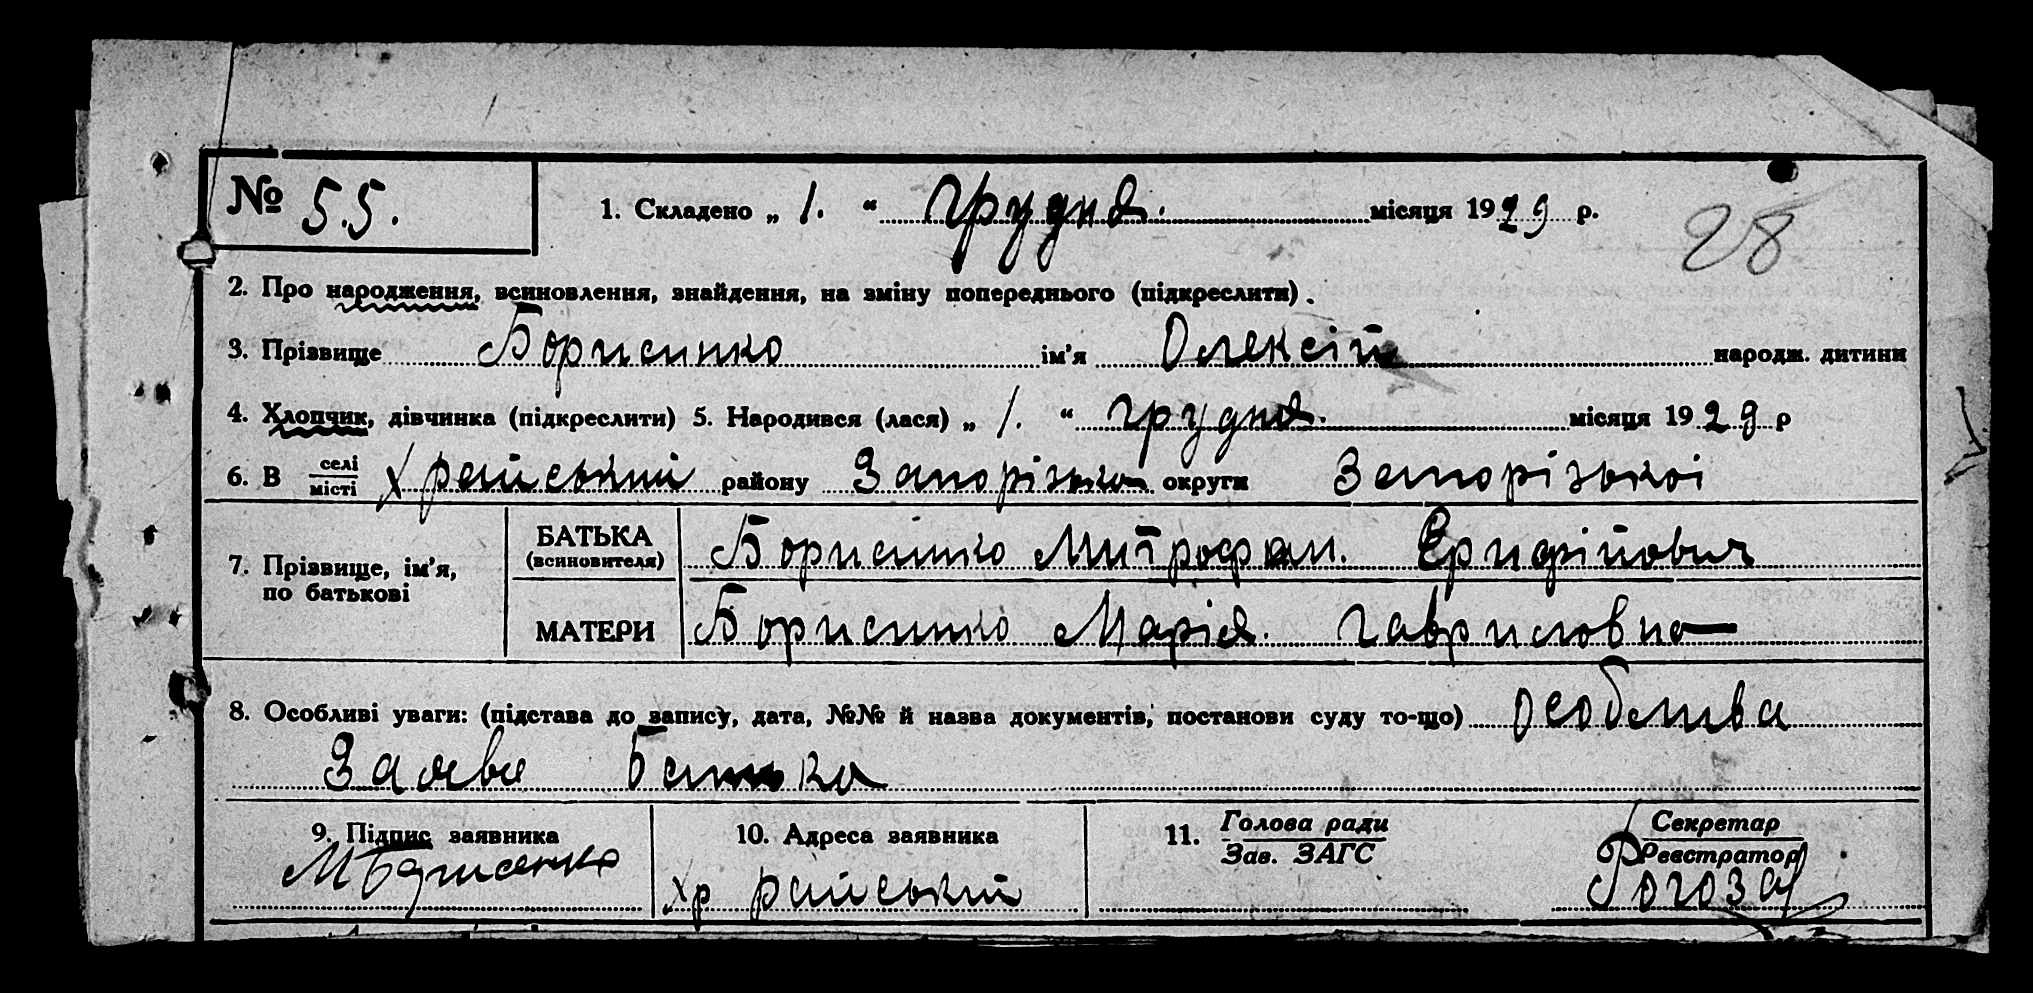 № 55. 1. Складено „ 1. “ грудня. місяця 1929 р. 28
2. Про народження, всиновлення, знайдення, на зміну попереднього (підкреслити).
3. Прізвище Борисенко ім’я Олексій народж. дитини
4. Хлопчик, дівчинка (підкреслити) 5. Народився (лася) „ 1. “ грудня. місяця 1929 р
6. В селі
місті Х райський району Запорізько округи Запорізькоі
7. Прізвище, ім’я,
по батькові
БАТЬКА
(всиновителя)
Борисенко Митрофан.
МАТЕРИ
Борисенко Марія. Гавриловна
8. Особливі уваги: (підстава до запису, дата, №№ й назва документів, постанови суду то-що) особенива
Заява Батька
9. Підпис заявника 10. Адреса заявника 11. Голова ради
Зав. ЗАГС Секретар
Реєстратор
МБорисенко хр райський Рогоза